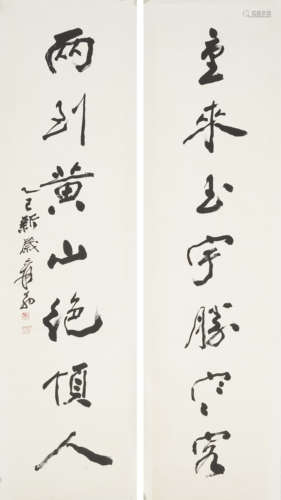 重來玉宇勝寒客
兩到黃山絕頂人
乙巳新歲 爰翁